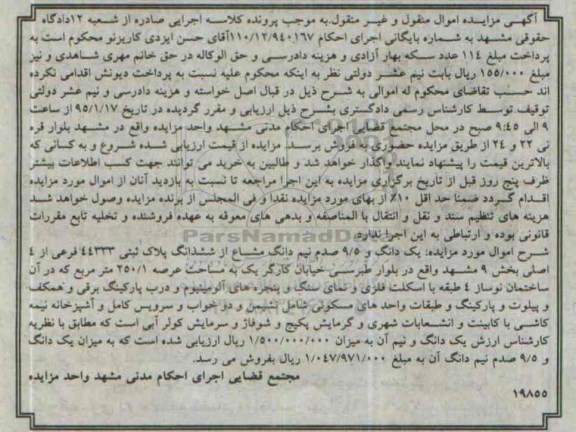 آگهی مزایده اموال منقول و غیر منقول.به موجب پرونده کلاسه اجرایی صادره از شعبه ۱۲دادگاه
حقوقی مشهد به شماره بایگانی اجرای احکام ۱۱۰/۱۲/۹۴۰۱۶۷آقای حسن ایزدی کاریزنو محکوم است به
پرداخت مبلغ ۱۱۴ عدد سکه بهار آزادی و هزینه دادرسی و حق الوکاله در حق خانم مهری شاهدی و نیز
مبلغ ۱۵۵/۰۰۰ ریال بابت نیم عشر دولتی نظر به اینکه محکوم علیه نسبت به پرداخت دیونش اقدامی نکرده
اند حسب تقاضای محکوم له اموالی به شرح ذیل در قبال اصل خواسته و هزینه دادرسی و نیم عشر دولتی
توقیف توسط کارشناس رسمی دادگستری بشرح ذیل ارزیابی و مقرر گردیده در تاریخ ۹۵/۱/۱۷ از ساعت
۹ الی ۹:۴۵ صبح در محل مجتمع قضایی اجرای احکام مدنی مشهد واحد مزایده واقع در مشهد بلوار قره
نی ۲۲ و ۲۴ از طریق مزایده حضوری به فروش برسد. مزایده از قیمت ارزیابی شده شروع و به کسانی که
بالاترین قیمت را پیشنهاد نمایند واگذار خواهد شد و طالبین به خرید می توانند جهت کسب اطلاعات بیشتر
ظرف پنج روز قبل از تاریخ برگزاری مزایده به این اجرا مراجعه تا نسبت به بازدید آنان از اموال مورد مزایده
اقدام گردد ضمنا حد اقل ۱۰٪ از بهای مورد مزایده نقدا و فی المجلس از برنده مزایده وصول خواهد شد
هزینه های تنظیم سند و نقل و انتقال با المناصفه و بدهی های معوقه به عهده فروشنده و تخلیه تابع مقررات
قانونی بوده و ارتباطی به این اجرا ندارد.
ParsNamadData
شرح اموال مورد مزایده: یک دانگ و ۹/۵ صدم نیم دانگ مشاع از ششدانگ پلاک ثبتی ۴۴۳۳۳ فرعی از ۴
اصلی بخش ۹ مشهد واقع در بلوار طبرسی خیابان کارگر یک به مساحت عرصه ۲۵۰/۱ متر مربع که در آن
ساختمان نوساز ۴ طبقه با اسکلت فلزی و نمای سنگ و پنجره های آلومینیوم و درب پارکینگ برقی و همکف
و پیلوت و پارکینگ و طبقات واحد های مسکونی شامل نشیمن و دو خواب و سرویس کامل و آشپزخانه نیمه
کاشی با کابینت و انشعابات شهری و گرمایش پکیج و شوفاژ و سرمایش کولر آبی است که مطابق با نظریه
کارشناس ارزش یک دانگ و نیم آن به میزان ۱/۵۰۰/۰۰۰/۰۰۰ ریال ارزیابی شده است که به میزان یک دانگ
و ۹/۵ صدم نیم دانگ آن به مبلغ ۱/۰۴۷/۹۷۱/۰۰۰ ریال بفروش می رسد.
مجتمع قضایی اجرای احکام مدنی مشهد واحد مزایده
۱۹۸۵۵